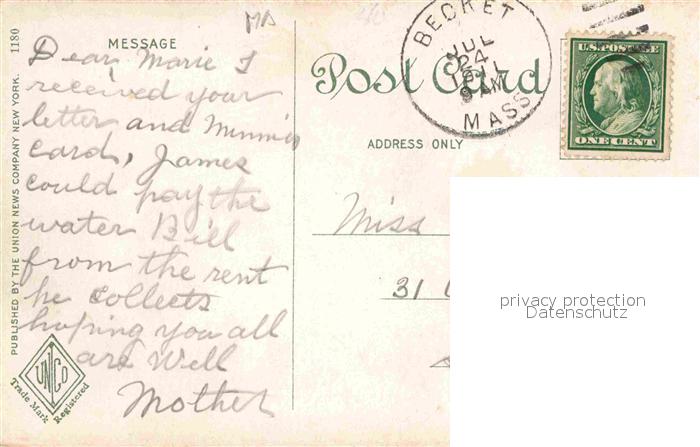 MA
MESSAGE
Dear Marie I
received your
letter and Minnies
card, James
could pay the
water Bill
from the rent
he collects
hoping you all
are well
Mother
PUBLISHED BY THE UNION NEWS COMPANY NEW YORK. 1180
UNCO
Trade Mark Registered
Post Card
BECKET
JUL
24
9 AM
MASS
U.S. POSTAGE
ONE CENT
ADDRESS ONLY
Miss
31
privacy protection
Datenschutz